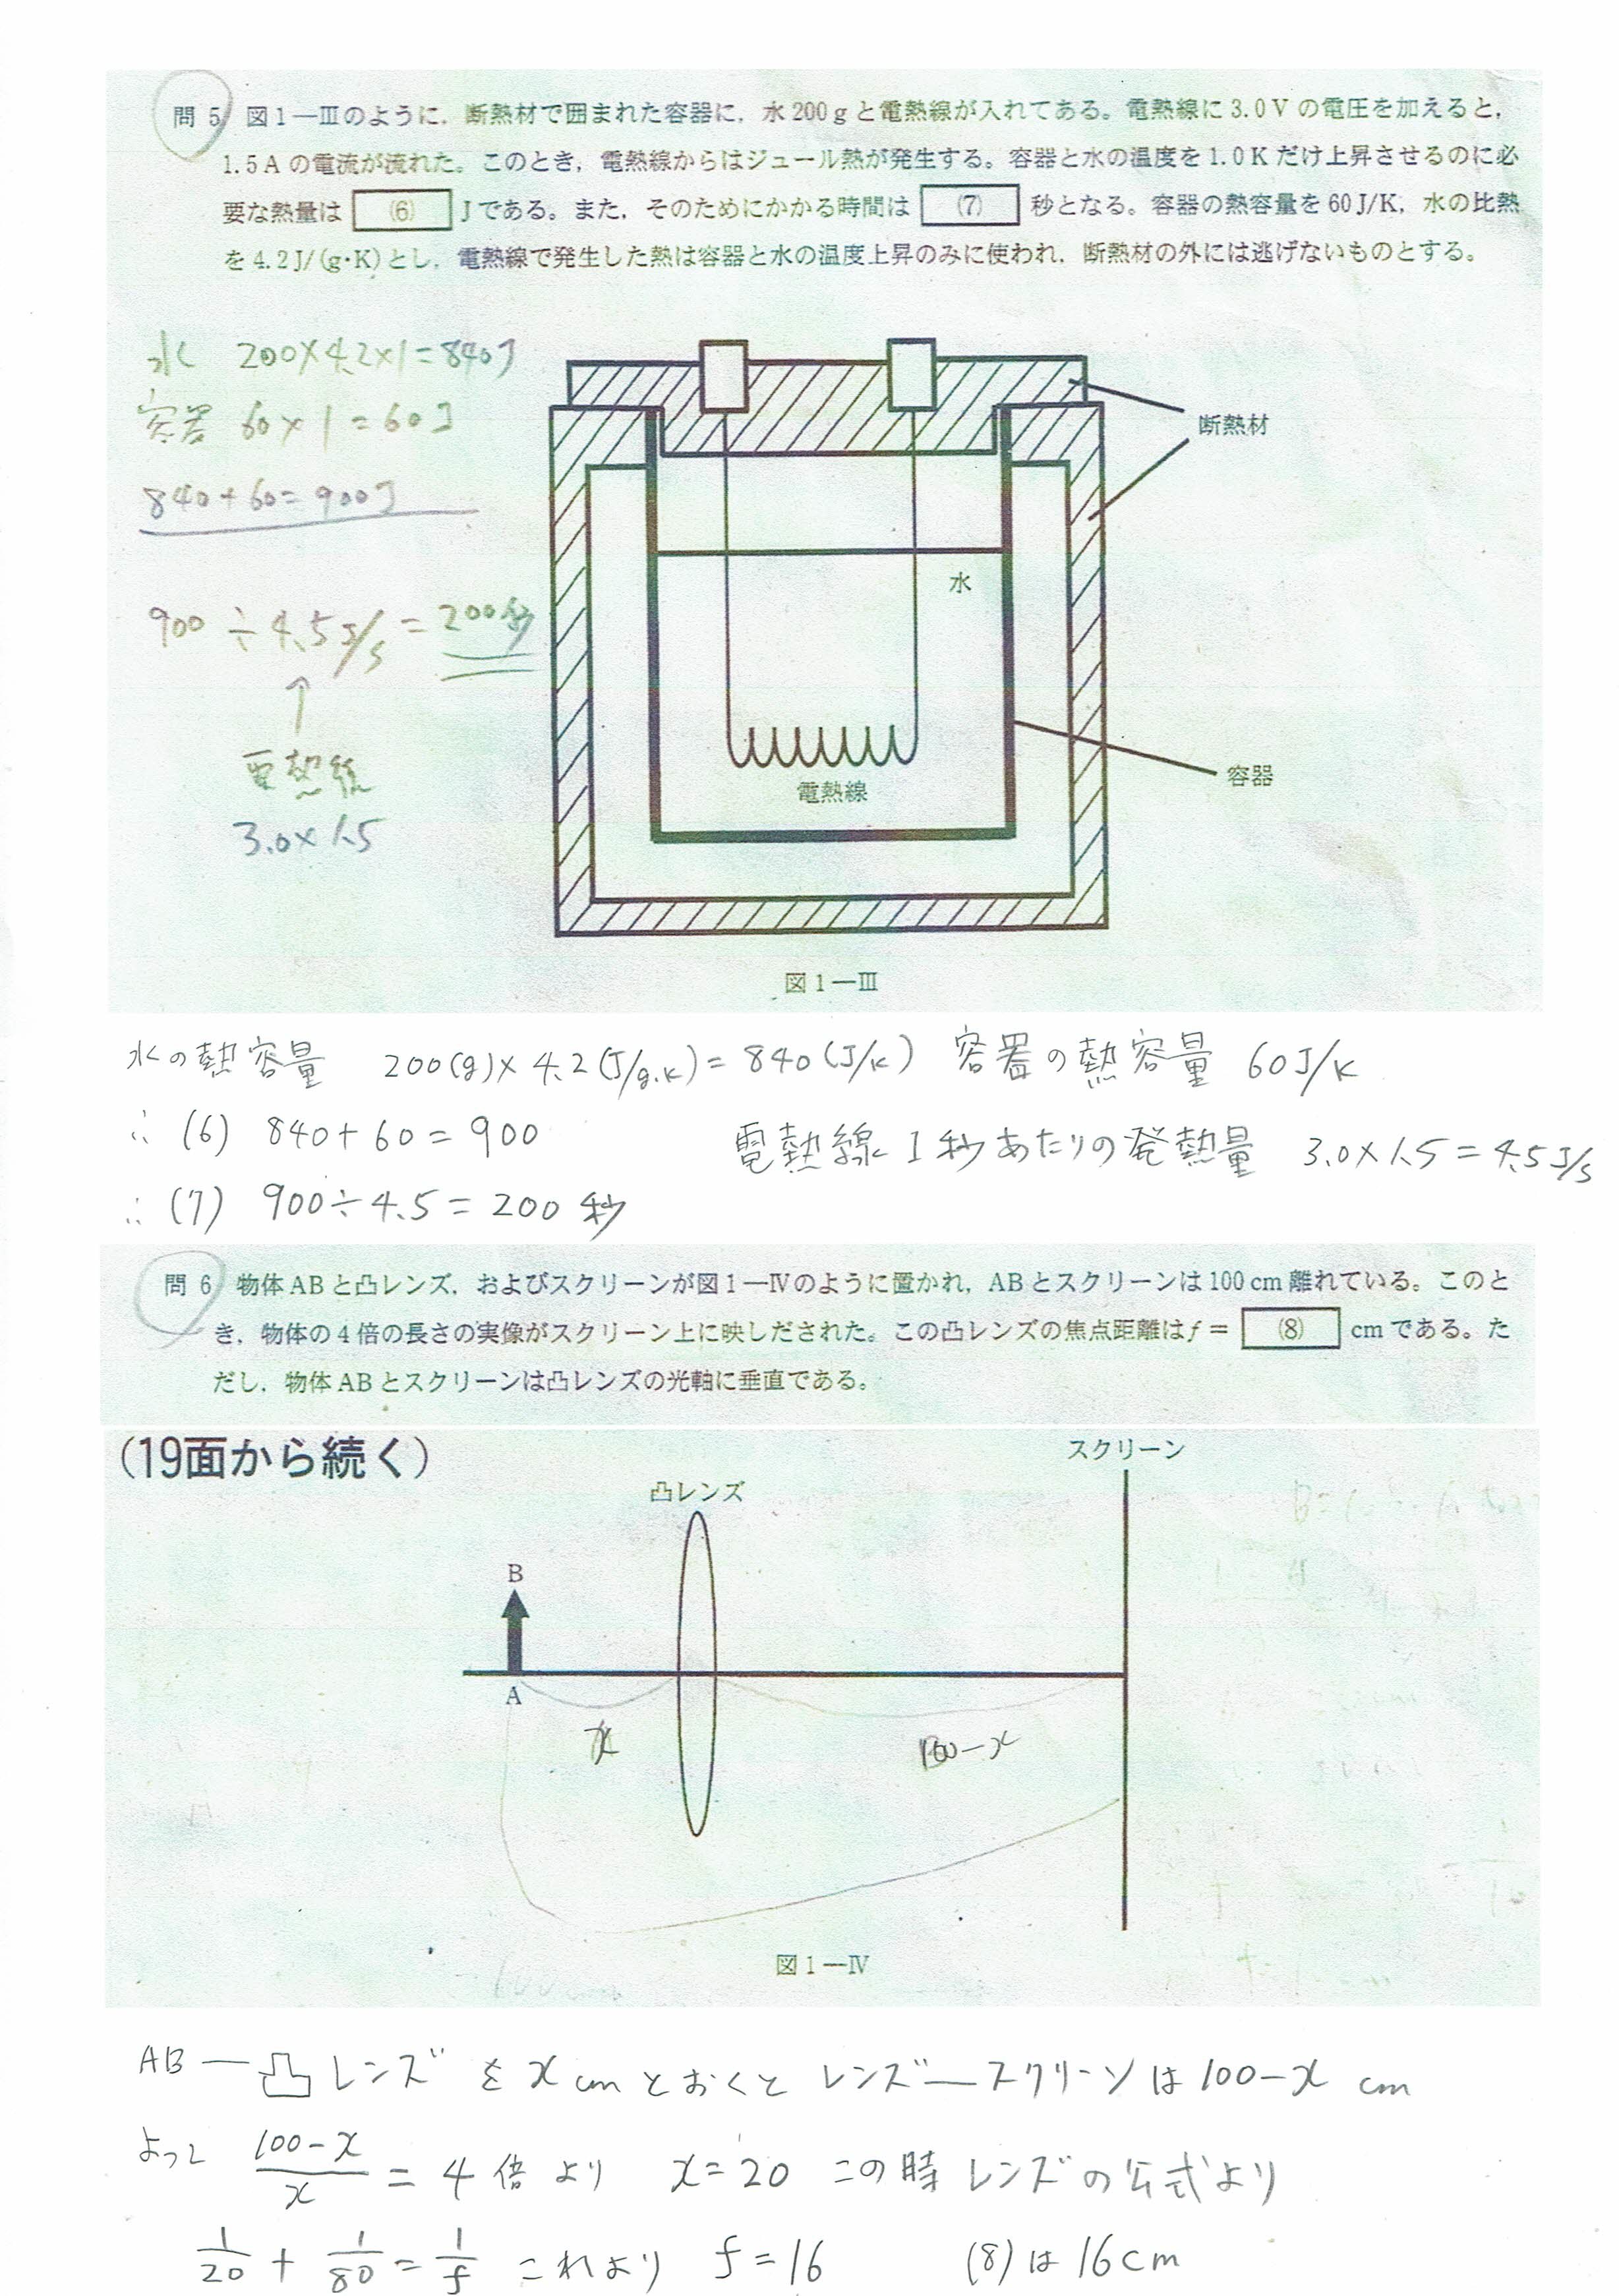 問5 図1―Ⅲのように，断熱材で囲まれた容器に，水200gと電熱線が入れてある。電熱線に3.0Vの電圧を加えると，
1.5Aの電流が流れた。このとき，電熱線からはジュール熱が発生する。容器と水の温度を1.0Kだけ上昇させるのに必
要な熱量は (6) Jである。また，そのためにかかる時間は (7) 秒となる。容器の熱容量を60J/K，水の比熱
を4.2J/(g・K)とし，電熱線で発生した熱は容器と水の温度上昇のみに使われ，断熱材の外には逃げないものとする。
水 200×4.2×1=840J
容器 60×1=60J
840+60=900J
900÷4.5J/s=200秒
↑
電熱線
3.0×1.5
断熱材
水
電熱線
容器
図1―Ⅲ
水の熱容量 200(g)×4.2(J/g.K)=840(J/K) 容器の熱容量 60J/K
∴(6) 840+60=900 電熱線1秒あたりの発熱量 3.0×1.5=4.5J/s
∴(7) 900÷4.5=200秒
問6 物体ABと凸レンズ，およびスクリーンが図1―Ⅳのように置かれ，ABとスクリーンは100cm離れている。このと
き，物体の4倍の長さの実像がスクリーン上に映しだされた。この凸レンズの焦点距離はf＝ (8) cmである。た
だし，物体ABとスクリーンは凸レンズの光軸に垂直である。
(19面から続く)
スクリーン
凸レンズ
B
A
x
100-x
図1―Ⅳ
AB―凸レンズをxcmとおくとレンズ―スクリーンは100-x cm
よって (100-x)/x = 4倍より x=20 この時レンズの公式より
1/20 + 1/80 = 1/f これより f=16 (8)は16cm